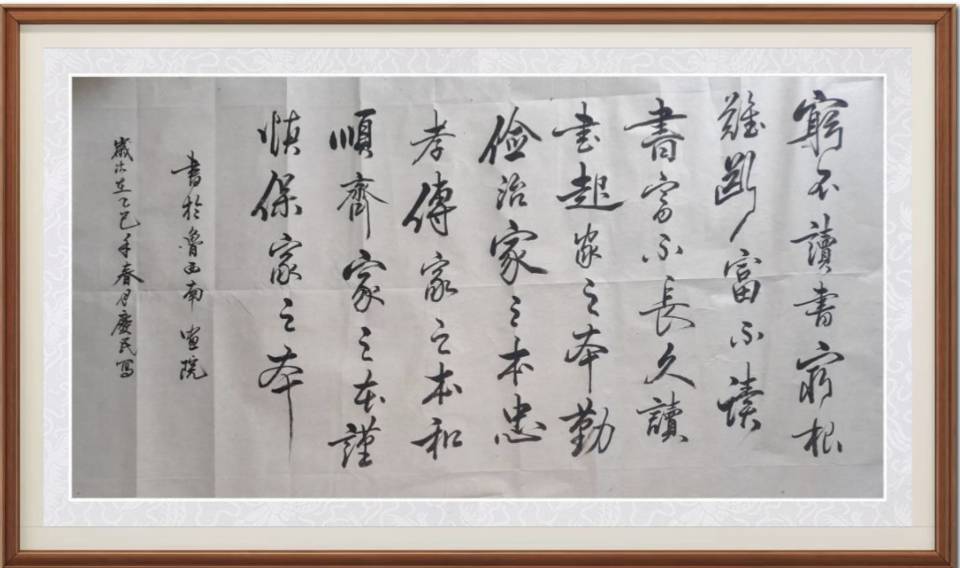 窮不讀書窮根
難斷富不读
書富不長久讀
書起家之本勤
俭治家之本忠
孝傳家之本和
順齊家之本謹
慎保家之本
書於魯西南畫院
歲次在乙巳年春月慶民寫